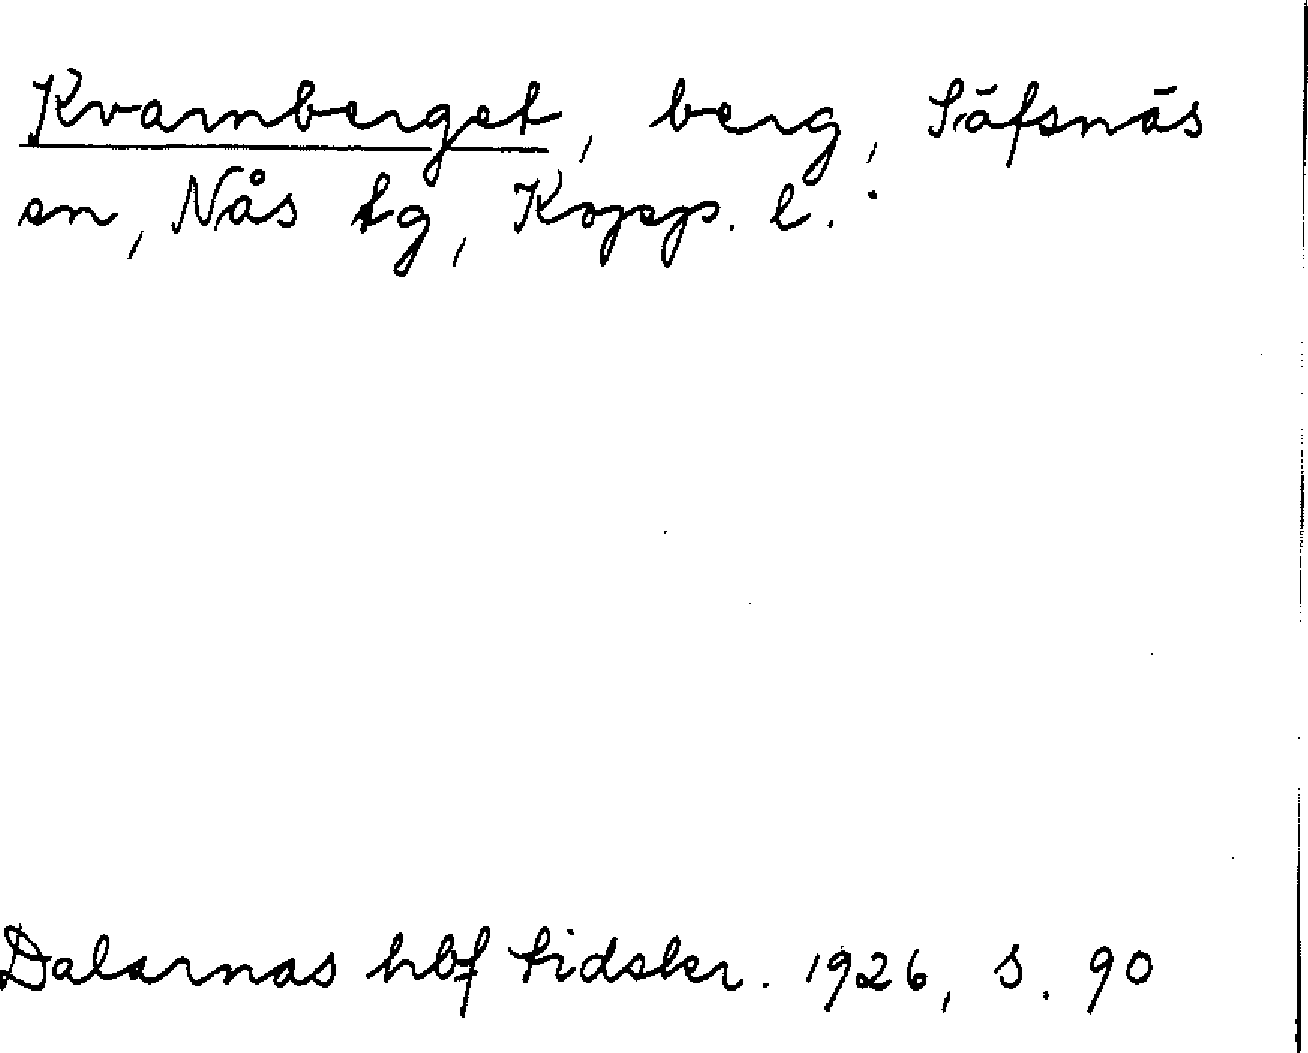 Kvarnberget, berg, Säfsnäs
sn, Nås tg, Kopp. l.
Dalarnas hbf tidskr. 1926, s. 90